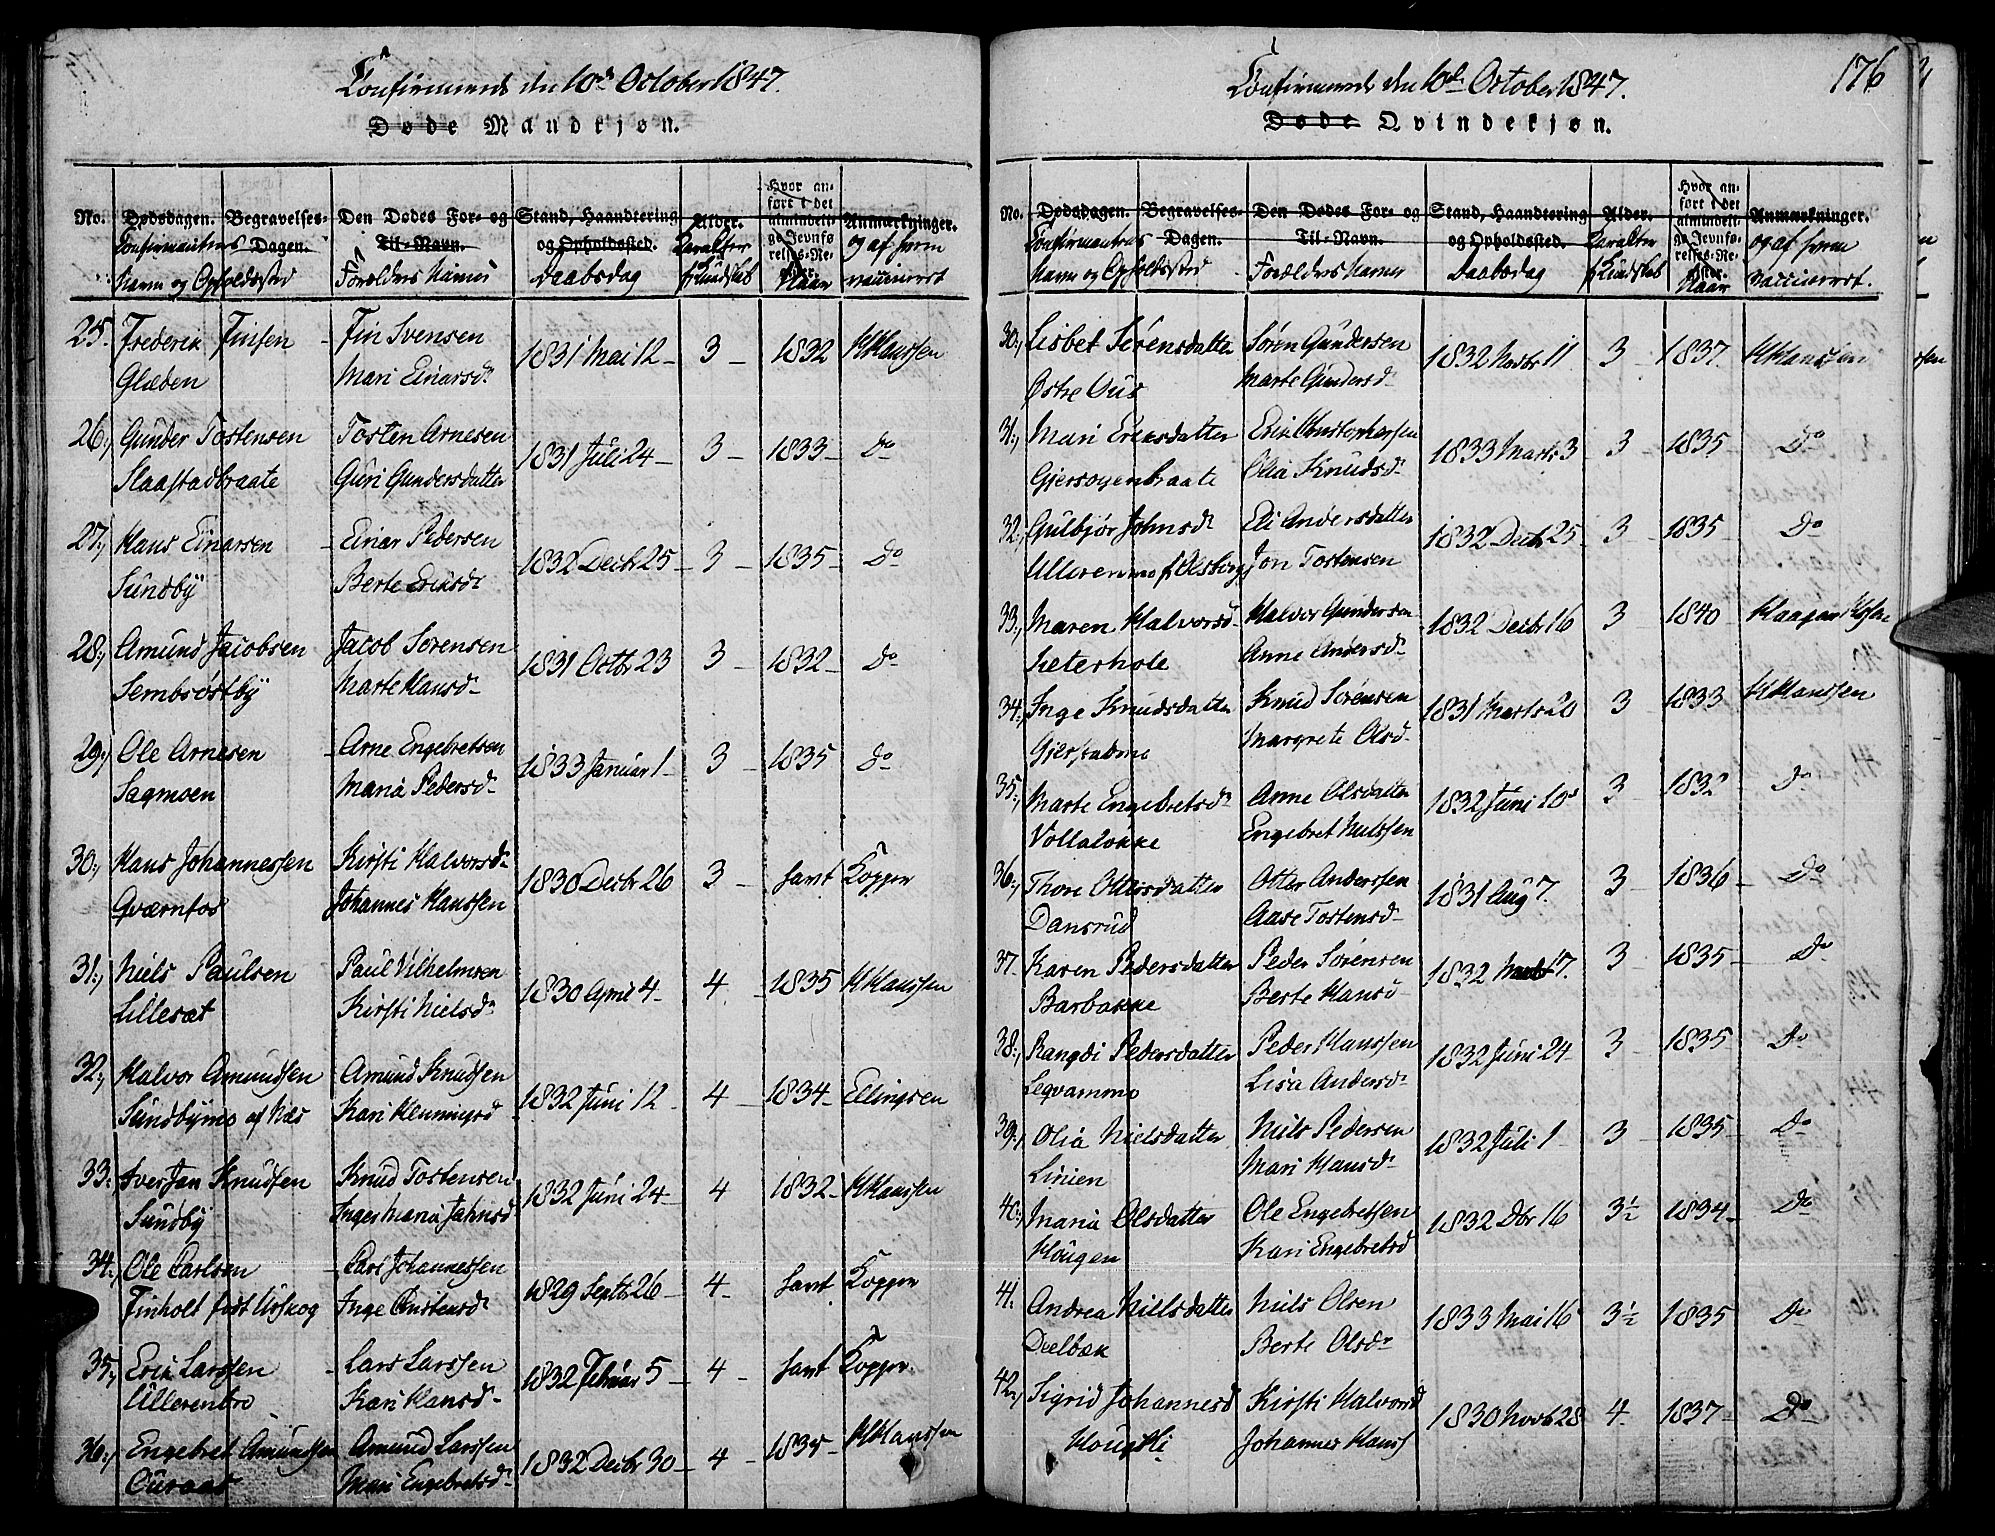 Confirmerede den 10de October 1847.
Døde Mandkjøn.
No. Dødsdagen. Begravelses-Dagen. Den Dødes For- og Til-Navn. Stand, Haandtering og Opholdssted. Alder. Hvor anført i det almindelige Jevnførelses-Register. Anmærkninger.
Confirmantens Navn og Opholdssted Forældres Navne Daabsdag Karakter f Kundskab Naar og af hvem vaccineret
25. Frederik Finsen - Fin Svensen 1831 Mai 12 - 3 - 1832 H Hanssen
Glæden Mari Einarsd.
26, Gunder Tostensen Tosten Arnesen 1831 Juli 24 - 3 - 1833 - Do
Slaastadbraate Guri Gundersdatter
27, Hans Einarsen - Einar Pedersen 1832 Decbr 25 - 3 - 1835 - Do
Sundby Berte Eriksd.
28, Amund Jacobsen Jacob Sørensen 1831 Octbr 23 3 - 1832 - Do
Sembsøstby Marte Hansd.
29, Ole Arnesen - Arne Engebretsen 1833 Januar 1 - 3 - 1835 Do
Sagmoen Maria Pedersd.
30, Hans Johannessen Kirsti Halvorsd. 1830 Decbr 26 3 - havt Kopper
Qværnfos Johannes Hanssen
31, Niels Paulsen Paul Vilhelmsen 1830 April 4 - 4 - 1835 H Hanssen
Lillesæt Kirsti Nielsd.
32, Halvor Amundsen Amund Knudsen 1832 Juni 12 - 4 - 1834 - Ellingsen
Sundbymo af Næs Kari Henningsd
33. Iver Jan Knudsen Knud Tostensen 1832 Juni 24 - 4 1832 - H Hanssen
Sundby Inger Maria Jahnsd
34, Ole Carlsen - Carl Johannessen 1829 Septbr 26 - 4 - havt Kopper
Finholt født Urskog Inge Christensd.
35, Erik Larssen - Lars Larssen 1832 Februar 5 - 4 - havt Kopper
Ullerenbro Kari Hansd.
36, Engebret Amundsen Amund Larssen 1832 Decbr 30 - 4 - 1835 - H Hanssen
Ouraas Mari Engebretsd.
Confirmerede den 10de October 1847. 176
Døde Qvindekjøn.
No. Dødsdagen. Begravelses-Dagen. Den Dødes For- og Til-Navn. Stand, Haandtering og Opholdssted. Alder. Hvor anført i det almindelige Jevnførelses-Register. Anmærkninger.
Confirmantens Navn og Opholdssted Forældres Navne Daabsdag Karakter f Kundskab Naar og af hvem vaccineret.
30, Lisbet Sørensdatter Søren Gundersen 1832 Novbr 11 3 - 1837 - H Hanssen
Østre Ous Marte Gundersd.
31, Mari Eriksdatter Erik Christophersen 1833 Marts 3 3 1835 Do
Gjersøyenbraate Olia Knudsd.
32, Gulbjør Johnsd. Eli Andersdatter 1832 Decbr 25 - 3 - 1835 - Do
Ullerenmo f Olsberg Jon Tostensen
33, Maren Halvorsd. Halvor Gundersen 1832 Decbr 16 3 1840
Seterhole Anne Andersd.
34, Inge Knudsdatter Knud Sørensen 1831 Marts 20 3 1833 H Hanssen
Margrete Olsd.
35, Marte Engebretsd. Anne Olsdatter 1832 Juni 10 3 - 1832 Do
Vollaløkke Engebret Nielssen
36, Thore Ottersdatter Otter Anderssen 1831 Aug 7. 3 - 1836 - Do
Dansrud Aase Tostensd.
37. Karen Pedersdatter Peder Sørensen 1832 17. 3 - 1835 - Do
Barbakke Berte Hansd.
38, Rangdi Pedersdatter Peder Hanssen 1832 Juni 24 - 3 - 1835 Do
Leqvammo Lisa Andersd.
39, Olia Nielsdatter Niels Pedersen 1832 Juli 1 3 - 1835 - Do
Linien Mari Hansd.
40, Maria Olsdatter Ole Engebretsen 1832 Dbr 16 3½ 1834 - Do
Hougen Kari Engebretsd
41. Andrea Nielsdatter Niels Olsen 1833 Mai 16 3½ 1835 Do
Deelbæk Berte Olsd.
42, Sigrid Johannesd Kirsti Halvorsd 1830 Novbr 28 4 - 1837 - Do
Johannes Hanss